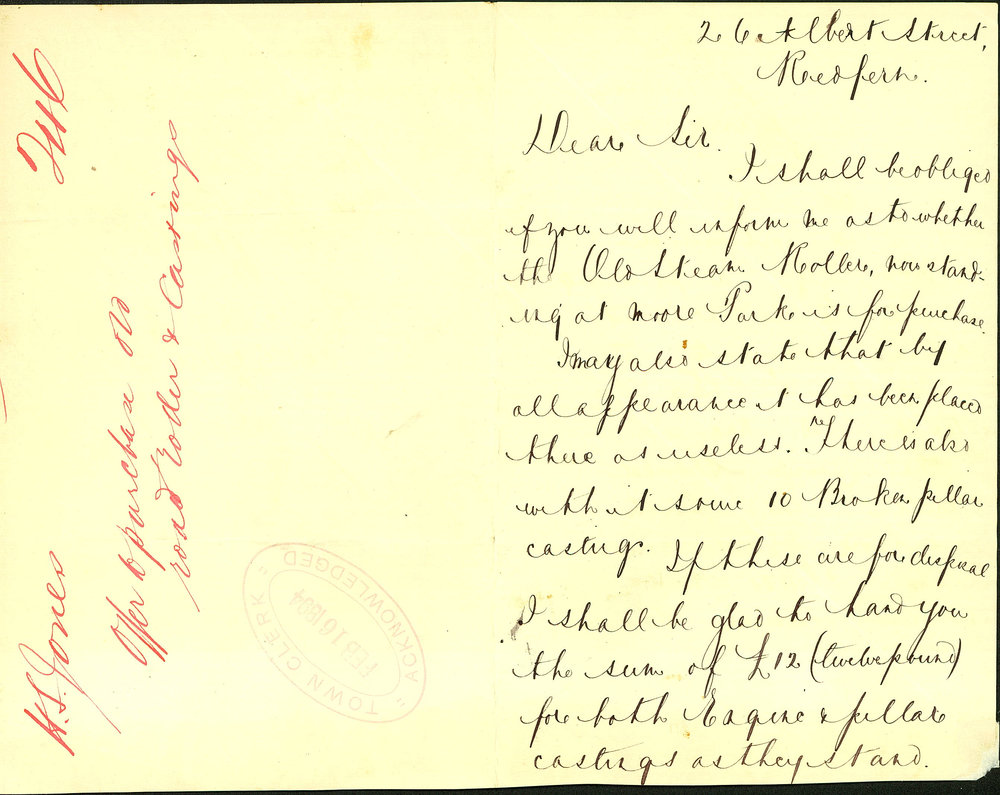 26 Albert Street,
Redfern.
Dear Sir.
I shall be obliged
if you will inform me as to whether
the Old Steam Roller, now stand-
ing at Moore Park is for purchase.
I may also state that by
all appearance it has been placed
there as useless. There is also
with it some 10 Broken pillar
castings. If these are for disposal
I shall be glad to hand you
the sum of £12 (twelve pound)
for both Engine & pillar
castings as they stand.
H.S. Jones
Offer to purchase old
road roller & Castings
TOWN CLERK
FEB 16 1894
"ACKNOWLEDGED"